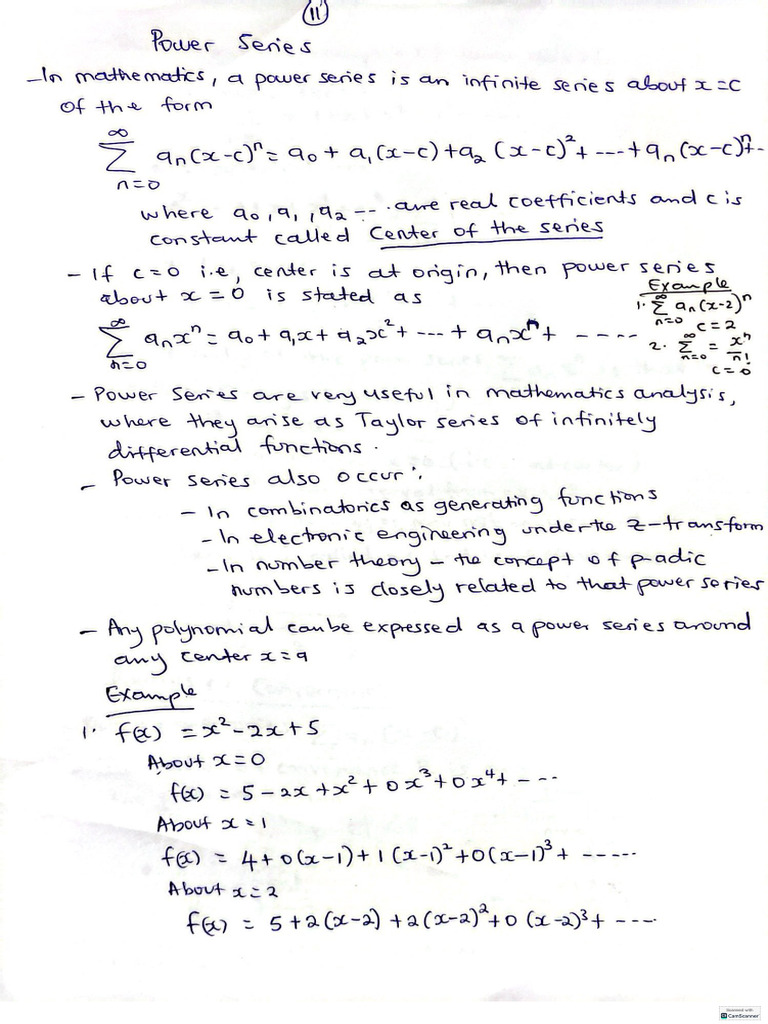 11
Power Series
- In mathematics, a power series is an infinite series about x = c
of the form
∞
∑ aₙ(x-c)ⁿ = a₀ + a₁(x-c) + a₂ (x-c)² + ---- + aₙ (x-c)ⁿ + -
n=0
where a₀, a₁, a₂ --- are real coefficients and c is
constant called Center of the series
- If c = 0 i.e, center is at origin, then power series
about x = 0 is stated as
∞
∑ aₙxⁿ = a₀ + a₁x + a₂x² + ---- + aₙxⁿ + -----
n=0
Example
1. ∞∑n=0 aₙ(x-2)ⁿ
c = 2
2. ∞∑n=0 = xⁿ/n!
c = 0
- Power Series are very useful in mathematics analysis,
where they arise as Taylor series of infinitely
differential functions.
- Power series also occur:
- In combinatorics as generating functions
- In electronic engineering under the Z-transform
- In number theory - the concept of p-adic
numbers is closely related to that power series
- Any polynomial can be expressed as a power series around
any center x = a
Example
1. f(x) = x² - 2x + 5
About x = 0
f(x) = 5 - 2x + x² + 0x³ + 0x⁴ + ----
About x = 1
f(x) = 4 + 0(x-1) + 1(x-1)² + 0(x-1)³ + -----
About x = 2
f(x) = 5 + 2(x-2) + 2(x-2)² + 0(x-2)³ + ----
Scanned with
CamScanner